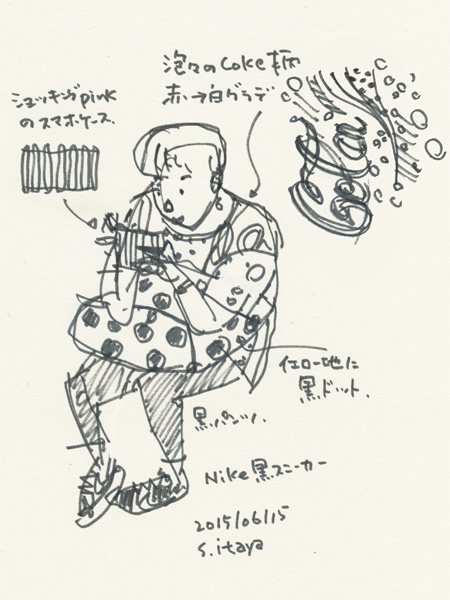 泡々のCoke柄
赤→白グラデ
ショッキングpink
のスマホケース.
Cola
イエロー地に
黒ドット.
黒パンツ.
Nike黒スニーカー
2015/06/15
S.itaya